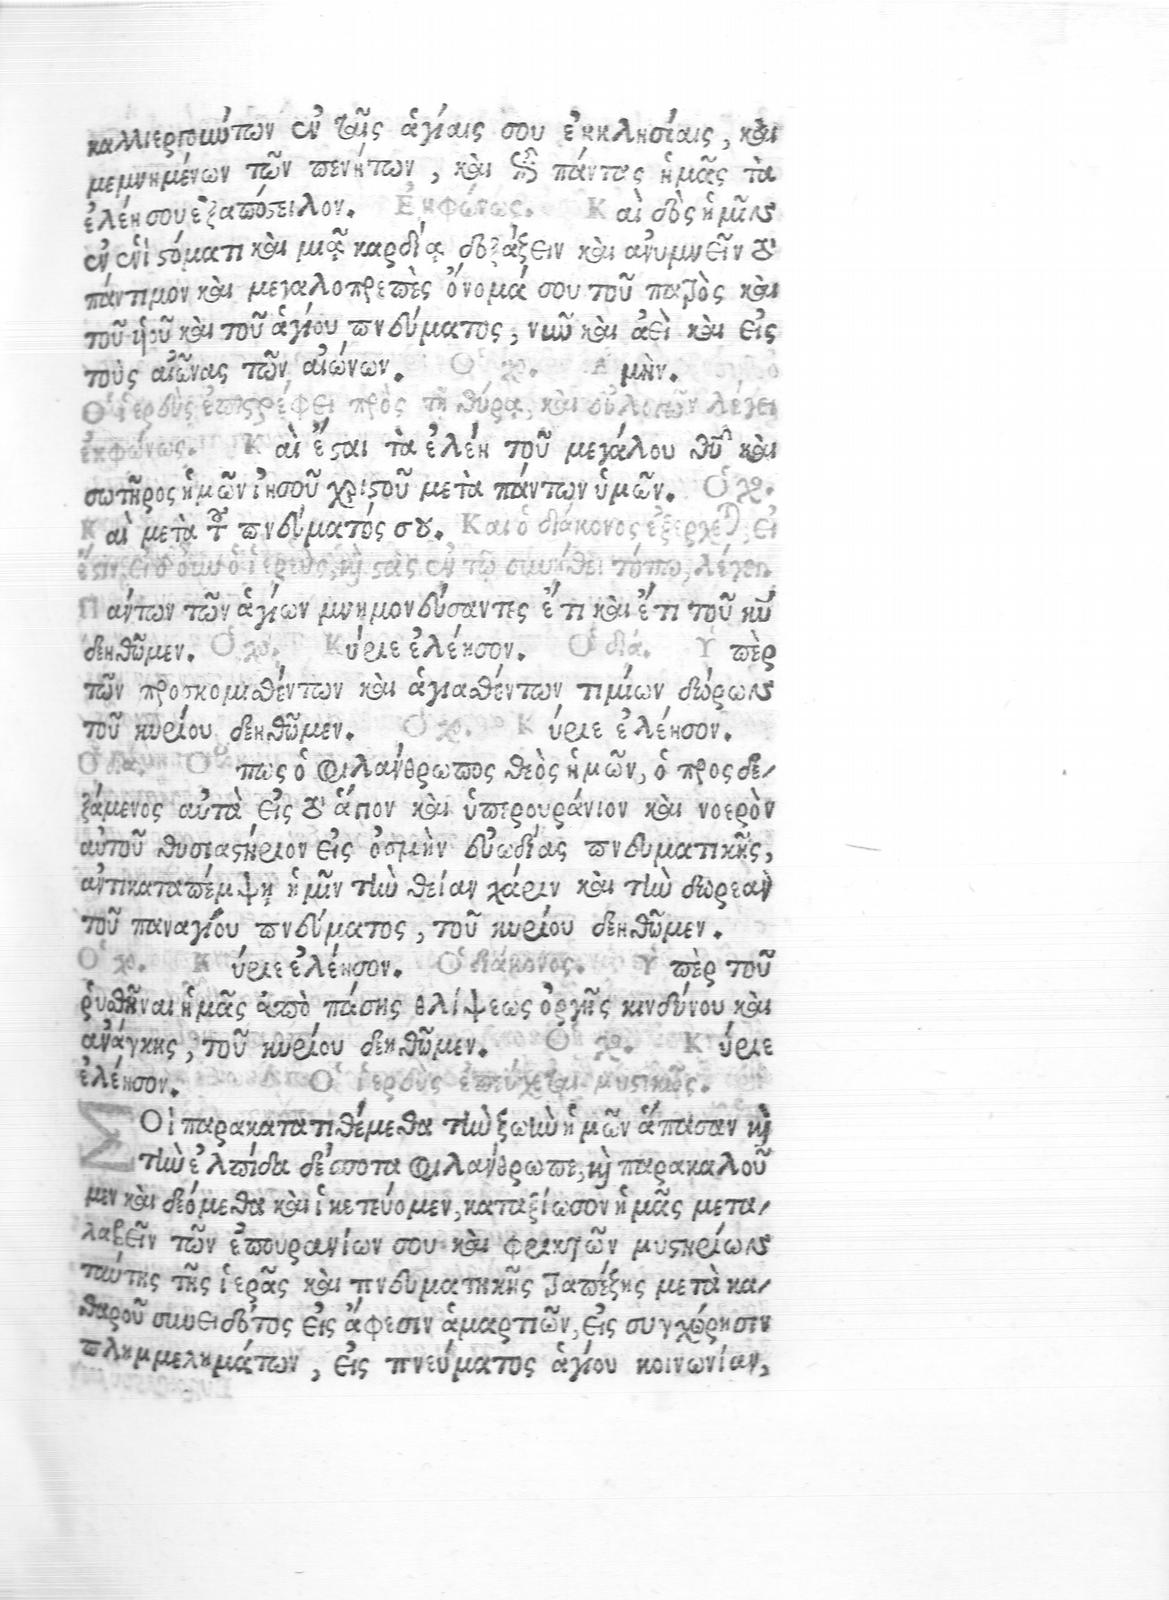 καλλιεργούντων ἐν ταῖς ἁγίαις σου ἐκκλησίαις, καὶ
μεμνημένων τῶν πενήτων, καὶ ἐπὶ πάντας ἡμᾶς τὰ
ἐλέη σου ἐξαπόστειλον. Ἐκφώνως. Καὶ δὸς ἡμῖν
ἐν ἑνὶ στόματι καὶ μιᾷ καρδίᾳ δοξάζειν καὶ ἀνυμνεῖν τὸ
πάντιμον καὶ μεγαλοπρεπὲς ὄνομά σου τοῦ πατρὸς καὶ
τοῦ υἱοῦ καὶ τοῦ ἁγίου πνεύματος, νῦν καὶ ἀεὶ καὶ εἰς
τοὺς αἰῶνας τῶν αἰώνων. Ὁ χο. Ἀμήν.
Ὁ ἱερεὺς ἐπιστρέφει πρὸς τῇ θύρᾳ, καὶ εὐλογῶν λέγει
ἐκφώνως. Καὶ ἔσται τὰ ἐλέη τοῦ μεγάλου θεοῦ καὶ
σωτῆρος ἡμῶν ἰησοῦ χριστοῦ μετὰ πάντων ὑμῶν. Ὁ χο.
Καὶ μετὰ τοῦ πνεύματός σου. Καὶ ὁ διάκονος ἐξέρχεται, εἰ
ἔστιν, εἰ δ' οὖν ὁ ἱερεὺς, καὶ στὰς ἐν τῷ συνήθει τόπῳ, λέγει.
Πάντων τῶν ἁγίων μνημονεύσαντες ἔτι καὶ ἔτι τοῦ κυ
δεηθῶμεν. Ὁ χο. Κύριε ἐλέησον. Ὁ διά. Ὑπὲρ
τῶν προσκομιθέντων καὶ ἁγιαθέντων τιμίων δώρων
τοῦ κυρίου δεηθῶμεν. Ὁ χο. Κύριε ἐλέησον.
Ὁ διά. Ὅπως ὁ φιλάνθρωπος θεὸς ἡμῶν, ὁ προσδε-
ξάμενος αὐτὰ εἰς τὸ ἅγιον καὶ ὑπερουράνιον καὶ νοερὸν
αὐτοῦ θυσιαστήριον εἰς ὀσμὴν εὐωδίας πνευματικῆς,
ἀντικαταπέμψῃ ἡμῖν τὴν θείαν χάριν καὶ τὴν δωρεὰν
τοῦ παναγίου πνεύματος, τοῦ κυρίου δεηθῶμεν.
Ὁ χο. Κύριε ἐλέησον. Ὁ διάκονος. Ὑπὲρ τοῦ
ῥυσθῆναι ἡμᾶς ἀπὸ πάσης θλίψεως ὀργῆς κινδύνου καὶ
ἀνάγκης, τοῦ κυρίου δεηθῶμεν. Ὁ χο. Κύριε
ἐλέησον. Ὁ ἱερεὺς ἐπεύχεται μυστικῶς.
ΣΟὶ παρακατατιθέμεθα τὴν ζωὴν ἡμῶν ἅπασαν καὶ
τὴν ἐλπίδα δέσποτα φιλάνθρωπε, καὶ παρακαλοῦ
μεν καὶ δεόμεθα καὶ ἱκετεύομεν, καταξίωσον ἡμᾶς μετα-
λαβεῖν τῶν ἐπουρανίων σου καὶ φρικτῶν μυστηρίων
ταύτης τῆς ἱερᾶς καὶ πνευματηκῆς τραπέζης μετὰ κα-
θαροῦ συνειδότος εἰς ἄφεσιν ἁμαρτιῶν, εἰς συγχώρησιν
πλημμελημάτων, εἰς πνεύματος ἁγίου κοινωνίαν,